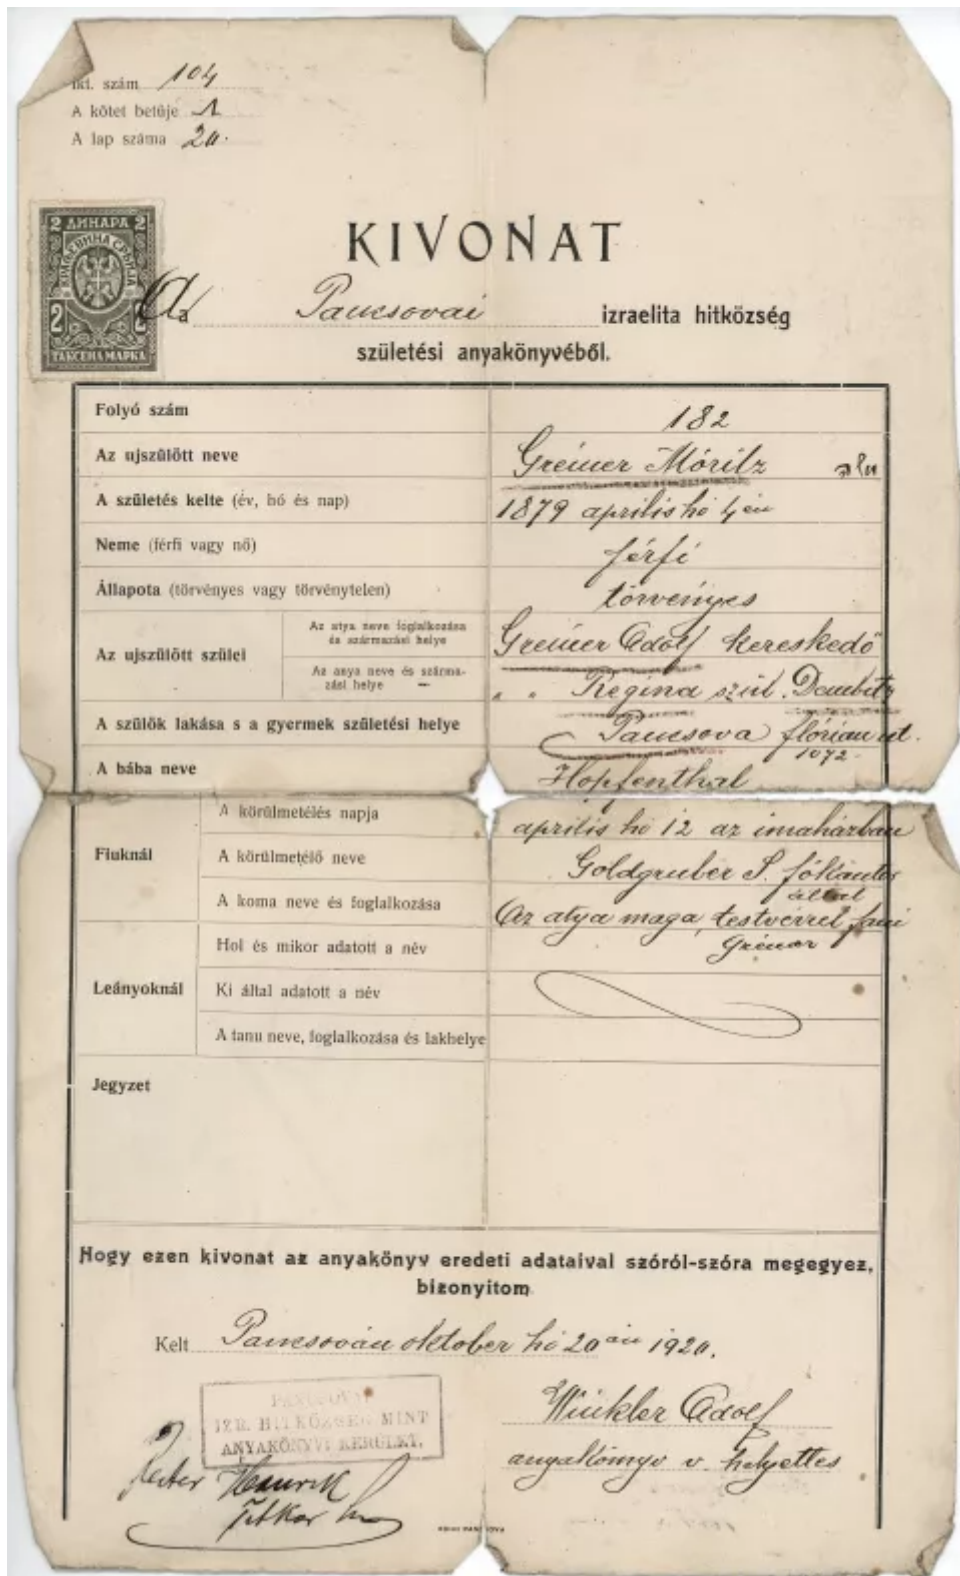 ikt. szám 104
A kötet betűje 1
A lap száma 20.
2 ДИНАРА 2
КРАЉЕВИНА СРБИЈА
2 2
ТАКСЕНА МАРКА
KIVONAT
A Pancsovai izraelita hitközség
születési anyakönyvéből.
Folyó szám 182
Az ujszülött neve Greiner Móritz משה
A születés kelte (év, hó és nap) 1879 április hó 4 én
Neme (férfi vagy nő) férfi
Állapota (törvényes vagy törvénytelen) törvényes
Az ujszülött szülei
Az atya neve foglalkozása és származási helye Greiner Adolf kereskedő
Az anya neve és származási helye – „ „ Regina szül.
A szülők lakása s a gyermek születési helye Pancsova flórian ut.
1072.
A bába neve Hopfenthal
Fiuknál
A körülmetélés napja április hó 12 az imaházban
A körülmetélő neve Goldgruber S. főkántor
által
A koma neve és foglalkozása Az atya maga, testvérrel
Greiner
Leányoknál
Hol és mikor adatott a név
Ki által adatott a név
A tanu neve, foglalkozása és lakhelye
Jegyzet
Hogy ezen kivonat az anyakönyv eredeti adataival szóról-szóra megegyez,
bizonyitom
Kelt Pancsován oktober hó 20 án 1920.
PANCSOVAI
IZR. HITKÖZSÉG MINT
ANYAKÖNYVI KERÜLET.
Winkler Adolf
anyakönyv v. helyettes
Henrik
Titkár